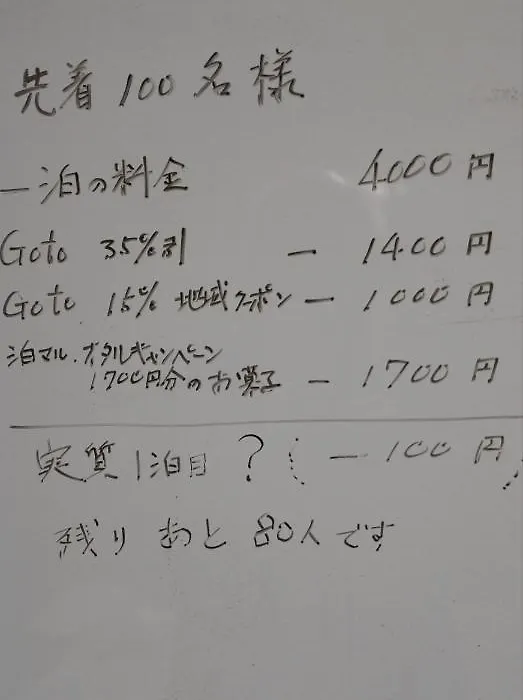 先着100名様
一泊の料金 4000円
Goto 35%割 ー 1400円
Goto 15% 地域クーポン ー 1000円
泊マル.オタルキャンペーン
1700円分のお菓子 ー 1700円
実質1泊目 ? (ー100円)
残りあと80人です